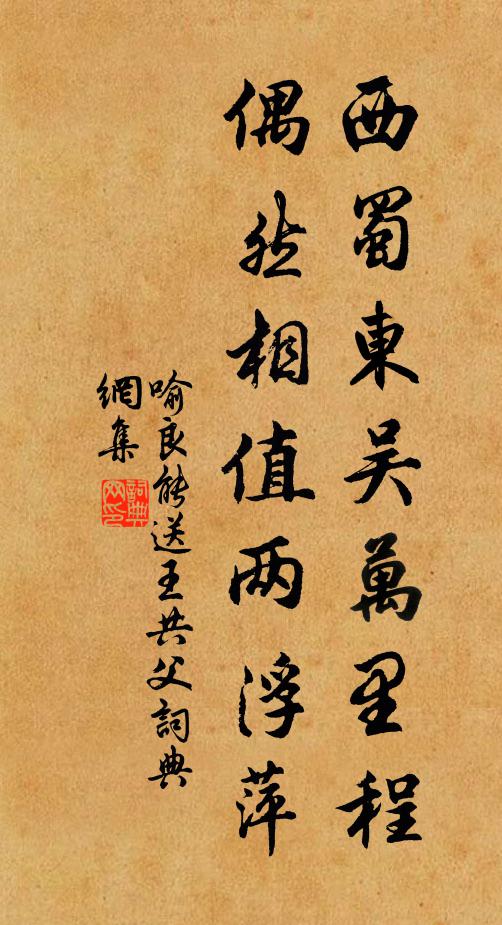 西蜀東吴萬里程
偶然相值两浮萍
喻良能送王共父詞典
網集
詞典網印